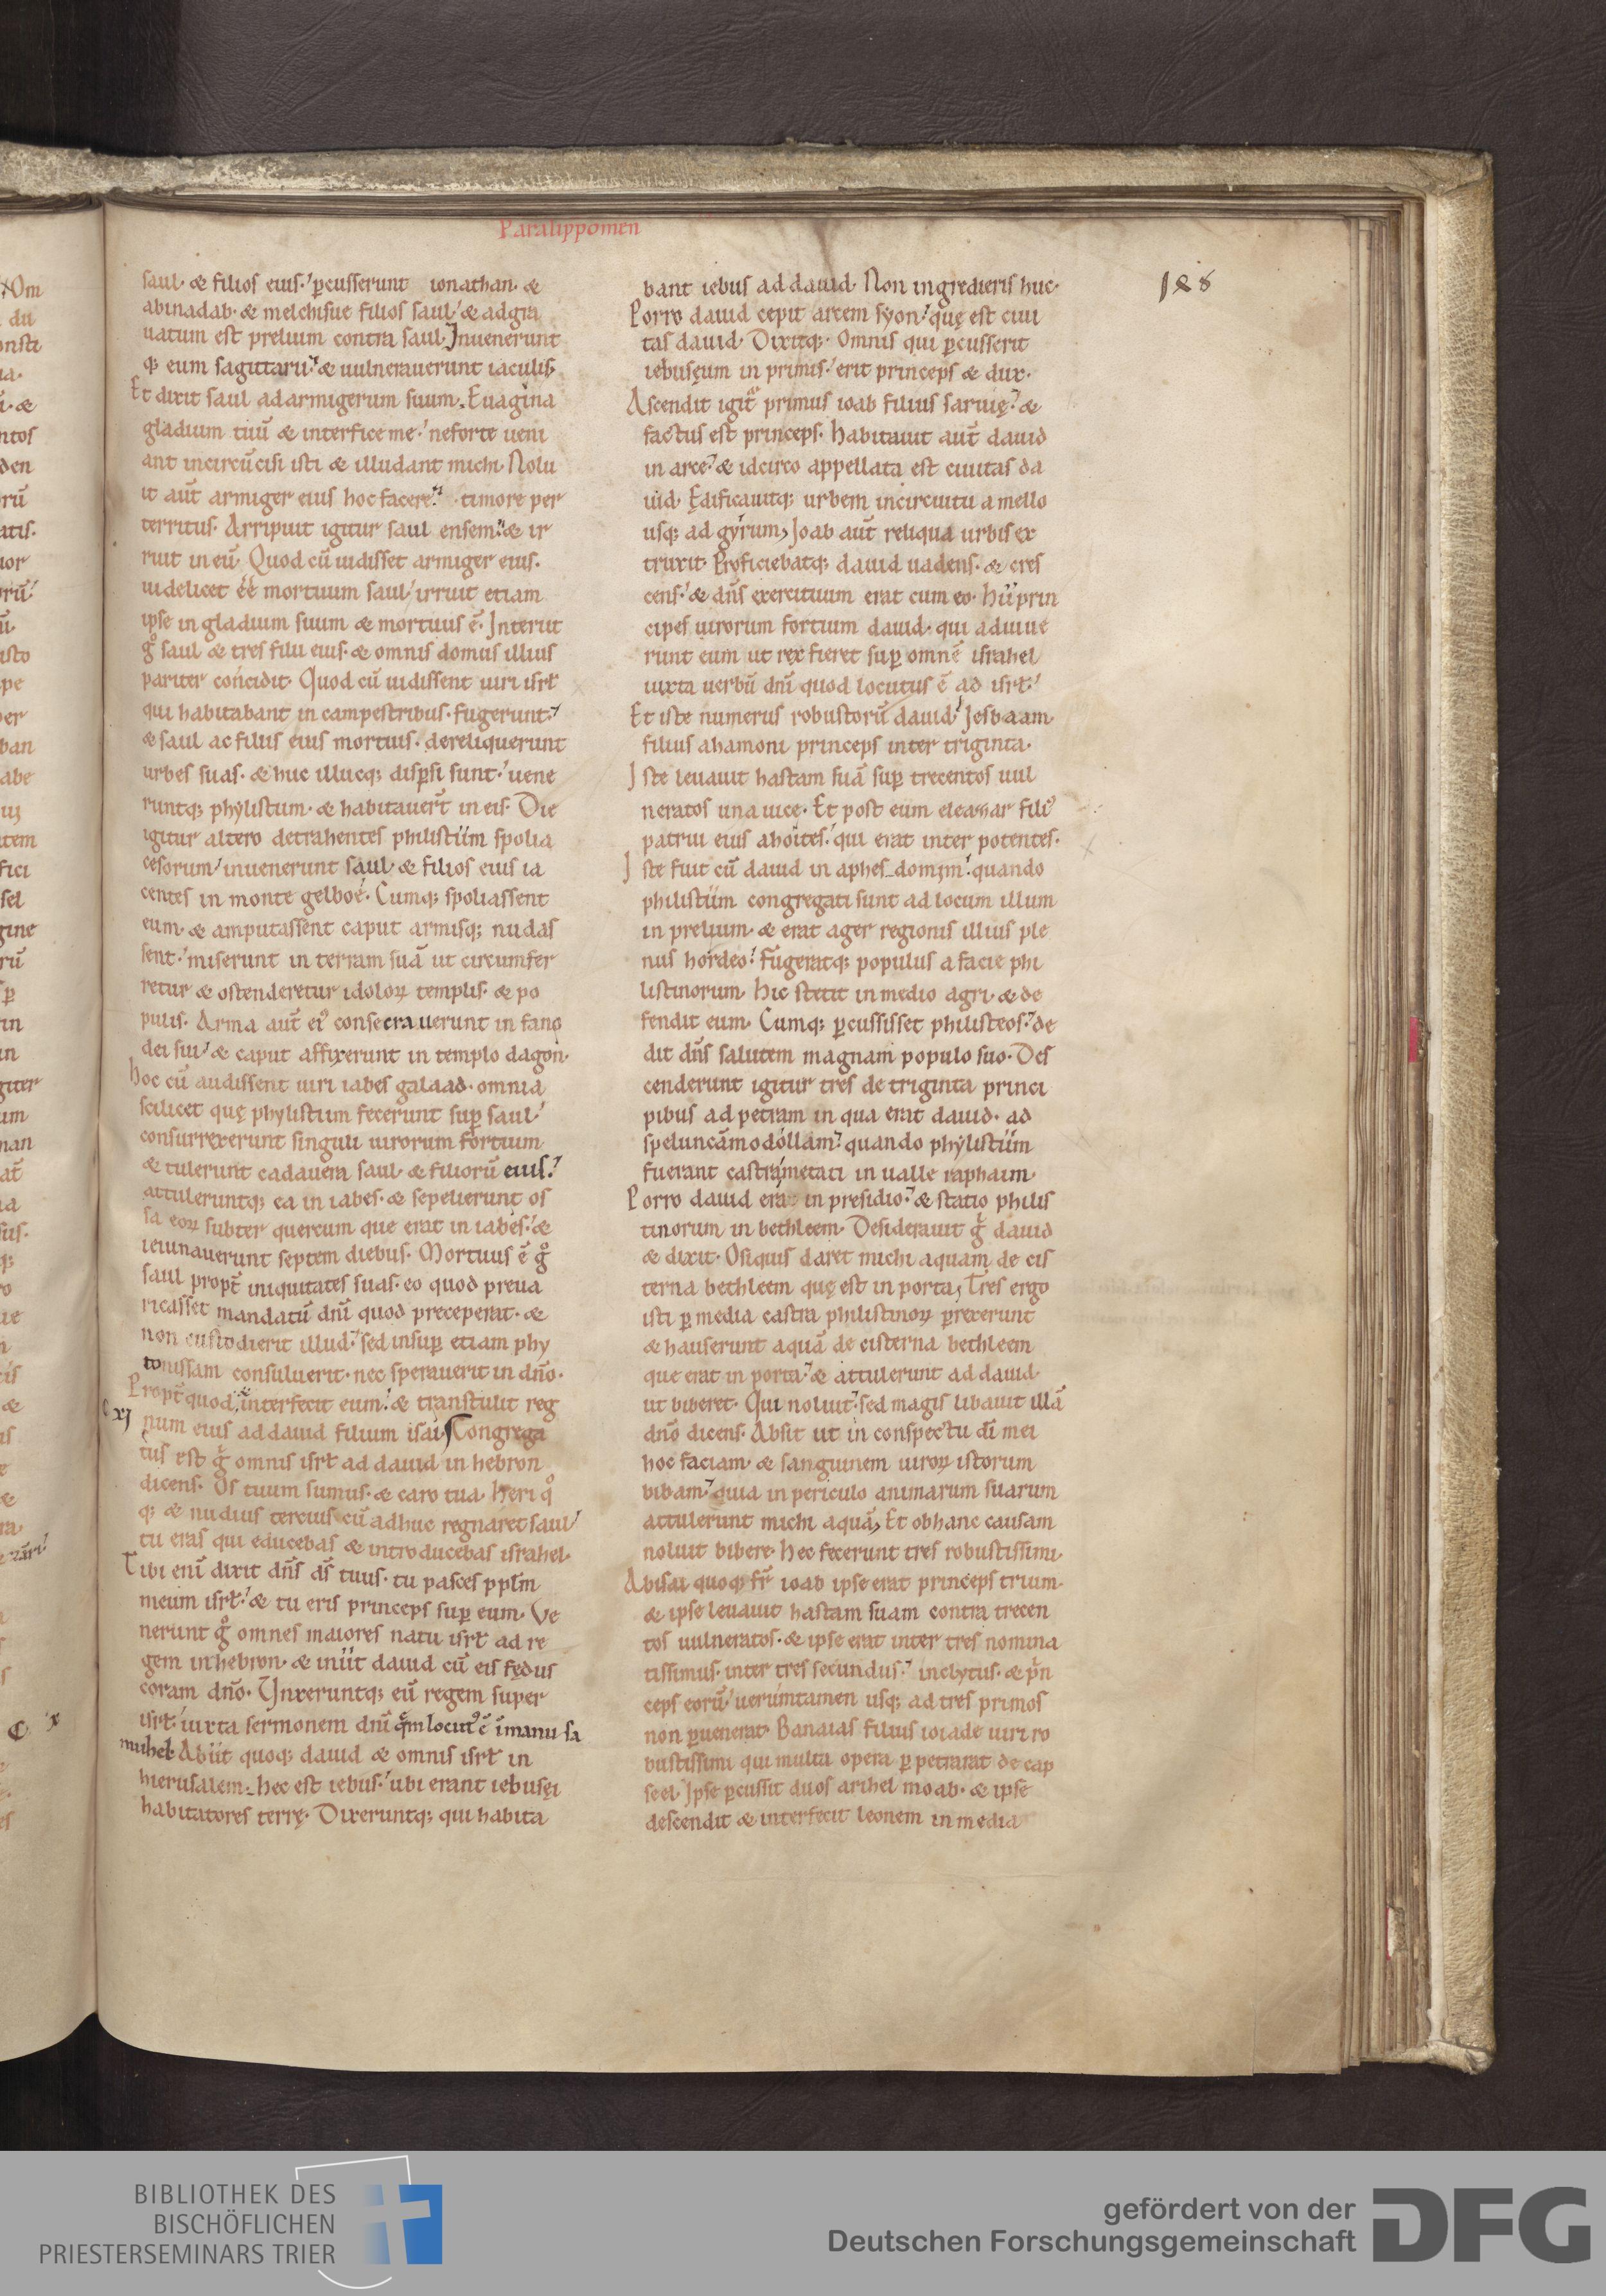 Paralippomen
188
saul· & filios eius·' ꝑcusserunt ionathan· &
abinadab· & melchisue filios saul·' & adgra
uatum est prelium contra saul· Inuenerunt
qꝫ eum sagittarii·' & uulnerauerunt iaculis·
Et dixit saul ad armigerum suum· Euagina
gladium tuū & interfice me·' ne forte ueni
ant incircūcisi isti & illudant michi· Nolu
it aut̄ armiger eius hoc facere·' timore per
territus· Arripuit igitur saul ensem·' & ir
ruit in eū· Quod cū uidisset armiger eius·
uidelicet ee̅ mortuum saul·' irruit etiam
ipse in gladium suum & mortuus ē· Interiit
gͦ saul & tres filii eius· & omnis domus illius
pariter concidit· Quod cū uidissent uiri isrł
qui habitabant in campestribus· fugerunt·'
& saul ac filiis eius mortuis· dereliquerunt
urbes suas· & huc illucqꝫ disꝑsi sunt·' uene
runtqꝫ phylistiim· & habitauer̄t in eis· Die
igitur altero detrahentes philistiim spolia
cesorum·' inuenerunt saul· & filios eius ia
centes in monte gelboe· Cumqꝫ spoliassent
eum· & amputassent caput armisqꝫ nudas
sent·' miserunt in terram suā ut circumfer
retur & ostenderetur idoloꝝ templis· & po
pulis· Arma aut̄ ei᾽ consecrauerunt in fano
dei sui·' & caput affixerunt in templo dagon·
hoc cū audissent uiri iabes galaad· omnia
scilicet quę phylistiim fecerunt suꝑ saul·'
consurrexerunt singuli uirorum fortium·
& tulerunt cadauera saul· & filiorū eius·'
attuleruntqꝫ ea in iabes· & sepelierunt os
sa eoꝝ subter quercum que erat in iabes·' &
ieiunauerunt septem diebus· Mortuus ē gͦ
saul propt̄ iniquitates suas· eo quod preua
ricasset mandatū dnī quod preceperat· &
non custodierit illud·' sed insuꝑ etiam phy
tonissam consuluerit· nec sperauerit in dnō·
Propt̄ quod interfecit eum·' & transtulit reg
xj num eius ad dauid filium isai· Congrega
tus est gͦ omnis isrł ad dauid in hebron
dicens· Os tuum sumus· & caro tua· heri qͦ
qꝫ & nudius tercius cū adhuc regnaret saul·'
tu eras qui educebas & introducebas israhel·
Tibi enī dixit dn̄s d̄s tuus· tu pasces pp̄lm
meum isrł·' & tu eris princeps suꝑ eum· Ve
nerunt gͦ omnes maiores natu isrł ad re
gem in hebron· & iniit dauid cū eis fędus
coram dnō· Unxeruntqꝫ eū regem super
isrł·' iuxta sermonem dnī qͤm locut᾽ ē ī manu sa
muhel· Abiit quoqꝫ dauid & omnis isrł in
hierusalem· hec est iebus·' ubi erant iebusęi
habitatores terrę· Dixeruntqꝫ qui habita
bant iebus ad dauid· Non ingredieris huc·
Porro dauid cepit arcem syon·' quę est ciui
tas dauid· Dixitqꝫ· Omnis qui ꝑcusserit
iebusęum in primis·' erit princeps & dux·
Ascendit igit᷑ primus ioab filius saruię·' &
factus est princeps· habitauit aut̄ dauid
in arce·' & idcirco appellata est ciuitas da
uid· Ędificauitqꝫ urbem in circuitu a mello
usqꝫ ad gyrum· Ioab aut̄ reliqua urbis ex
truxit· Proficiebatqꝫ dauid uadens· & cres
cens·' & dn̄s exercituum erat cum eo· hii prin
cipes uirorum fortium dauid· qui adiuue
runt eum ut rex fieret suꝑ omnē israhel
iuxta uerbū dnī quod locutus ē ad isrł·'
Et iste numerus robustorū dauid·' Iesbaam
filius ahamoni princeps inter triginta·
Iste leuauit hastam suā suꝑ trecentos uul
neratos una uice· Et post eum eleazar fili᾽
patrui eius ahoites·' qui erat inter potentes·
Iste fuit cū dauid in aphesdomim·' quando
philistiim congregati sunt ad locum illum
in prelium· & erat ager regionis illius ple
nus hordeo·' fugeratqꝫ populus a facie phi
listinorum· hic stetit in medio agri· & de
fendit eum· Cumqꝫ ꝑcussisset philisteos·' de
dit dn̄s salutem magnam populo suo· Des
cenderunt igitur tres de triginta princi
pibus ad petram in qua erat dauid· ad
speluncām odollam·' quando phylistiim
fuerant castrametati in ualle raphaim·
Porro dauid era in presidio·' & statio philis
tinorum in bethleem· Desiderauit gͦ dauid
& dixit· O siquis daret michi aquam de cis
terna bethleem quę est in porta· Tres ergo
isti ꝑ media castra philistinoꝝ ꝑrexerunt
& hauserunt aquā de cisterna bethleem
que erat in porta·' & attulerunt ad dauid·
ut biberet· Qui noluit·' sed magis libauit illā
dnō dicens· Absit ut in conspectu dī mei
hoc faciam· & sanguinem uiroꝝ istorum
bibam·' quia in periculo animarum suarum
attulerunt michi aquā· Et ob hanc causam
noluit bibere· hec fecerunt tres robustissimi·
Abisai quoqꝫ fr̄ ioab ipse erat princeps trium·
& ipse leuauit hastam suam contra trecen
tos uulneratos· & ipse erat inter tres nomina
tissimus· inter tres secundus·' inclytus· & pͥn
ceps eorū·' uerumtamen usqꝫ ad tres primos
non ꝑuenerat· Banaias filius ioiade uiri ro
bustissimi qui multa opera ꝑpetrarat de cap
seel· Ipse ꝑcussit duos arihel moab· & ipse
descendit & interfecit leonem in media
BIBLIOTHEK DES
BISCHÖFLICHEN
PRIESTERSEMINARS TRIER
gefördert von der
Deutschen Forschungsgemeinschaft
DFG